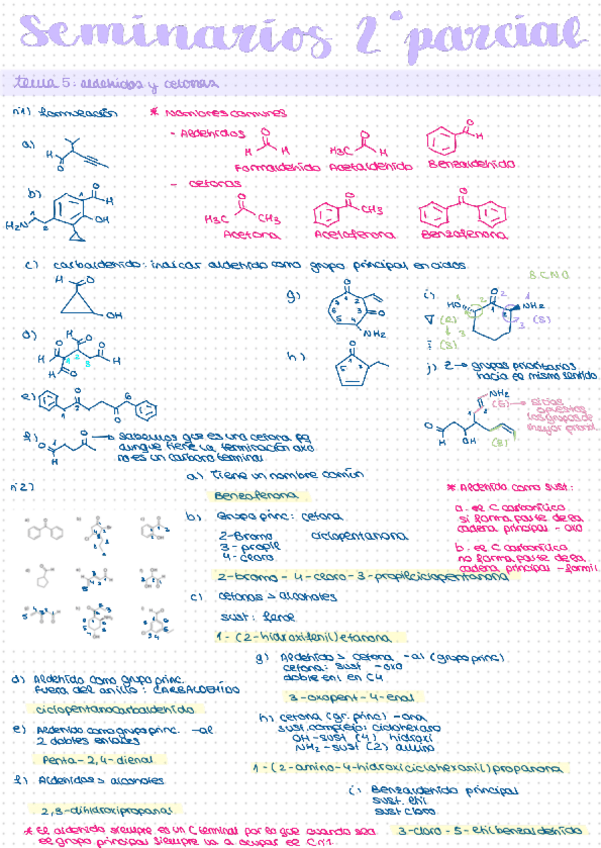 Seminarios 2º parcial
tema 5: aldehidos y cetonas
nº1) formulación
* Nombres comunes
- Aldehidos
Formaldehido Acetaldehido Benzaldehido
- cetonas
Acetona Acetofenona Benzofenona
a)
b)
c) carbaldehido: indicar aldehido como grupo principal en ciclos
d)
e)
f) → sabemos que es una cetona pq
aunque tiene la terminación oxo
no es un carbono terminal
g)
h)
i)
j) Z → grupos prioritarios
hacia el mismo sentido
nº2)
a) tiene un nombre común
Benzofenona
b) Grupo princ: cetona
2-Bromo ciclopentanona
3-propil
4-cloro
2-bromo-4-cloro-3-propilciclopentanona
c) cetonas > alcoholes
sust: fenol
1-(2-hidroxifenil)etanona
* Aldehido como sust:
a. el C carbonílico
si forma parte de la
cadena principal - oxo
b. el C carbonílico
no forma parte de la
cadena principal - formil
d) Aldehido como grupo princ.
fuera del anillo: CARBALDEHIDO
ciclopentanocarbaldehido
e) Aldehido como grupo princ. -al
2 dobles enlaces
Penta-2,4-dienal
f) Aldehidos > alcoholes
2,3-dihidroxipropanal
g) Aldehido > cetona -al (grupo princ)
cetona: sust -oxo
doble enl en C4
3-oxopent-4-enal
h) cetona (gr. princ) -ona
sust. complejo: ciclohexano
OH-sust (4) hidroxi
NH2-sust (2) amino
1-(2-amino-4-hidroxiciclohexanil)propanona
i) Benzaldehido principal
sust. etil
sust cloro
3-cloro-5-etilbenzaldehido
* El aldehido siempre es un C terminal por lo que cuando sea
el grupo principal siempre va a ocupar el C nº1